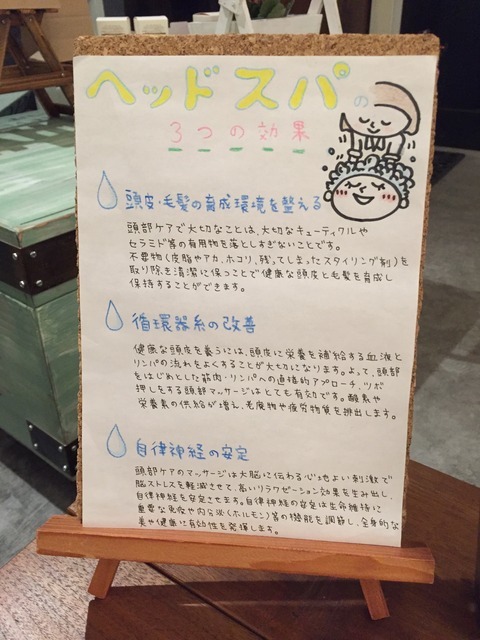 ヘッドスパの
3つの効果
頭皮・毛髪の育成環境を整える
頭部ケアで大切なことは、大切なキューティクルや
セラミド等の有用物を落としすぎないことです。
不要物(皮脂やアカ、ホコリ、残ってしまったスタイリング剤)を
取り除き清潔に保つことで健康な頭皮と毛髪を育成し
保持することができます。
循環器系の改善
健康な頭皮を養うには、頭皮に栄養を補給する血液と
リンパの流れをよくすることが大切になります。よって、頭部
をはじめとした筋肉・リンパへの直接的アプローチ、ツボ
押しをする頭部マッサージはとても有効です。酸素や
栄養素の供給が増え、老廃物や疲労物質を排出します。
自律神経の安定
頭部ケアのマッサージは大脳に伝わる心地よい刺激で
脳ストレスを軽減させて、高いリラクゼーション効果を生み出し、
自律神経を安定させます。自律神経の安定は生命維持に
重要な免疫や内分泌(ホルモン)等の機能を調節し、全身的な
美や健康に有効性を発揮します。